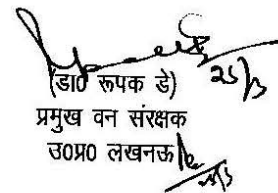 (डा0 रूपक डे)
25/3
प्रमुख वन संरक्षक
उ0प्र0 लखनऊ